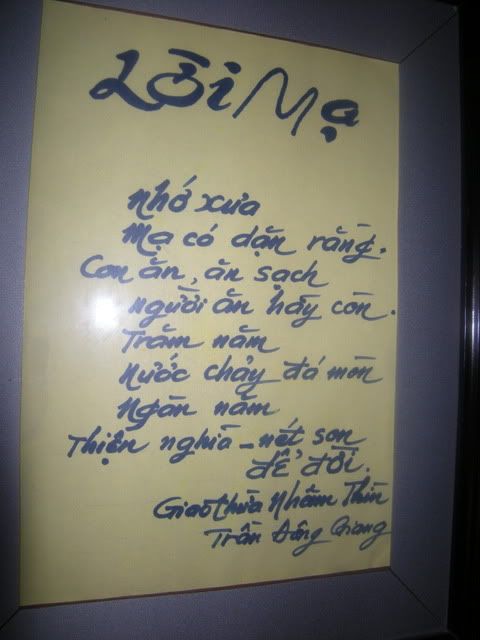 Lời Mạ
Nhớ xưa
Mạ có dặn rằng.
Con ăn, ăn sạch
người ăn hãy còn.
Trăm năm
Nước chảy đá mòn
Ngàn năm
Thiện nghĩa - nét son
để đời.
Giao thừa Nhâm Thìn
Trần Đông Giang